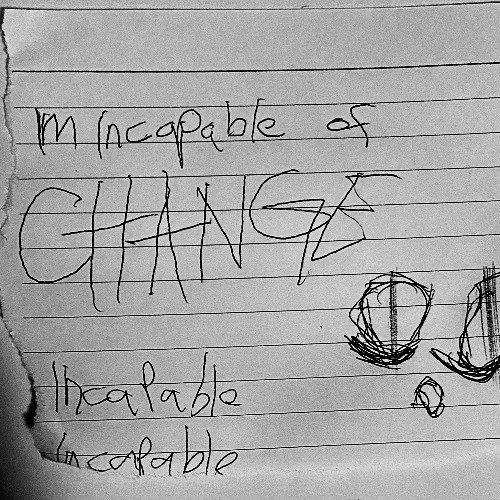 Im incapable of
CHANGE
Incapable
incapable